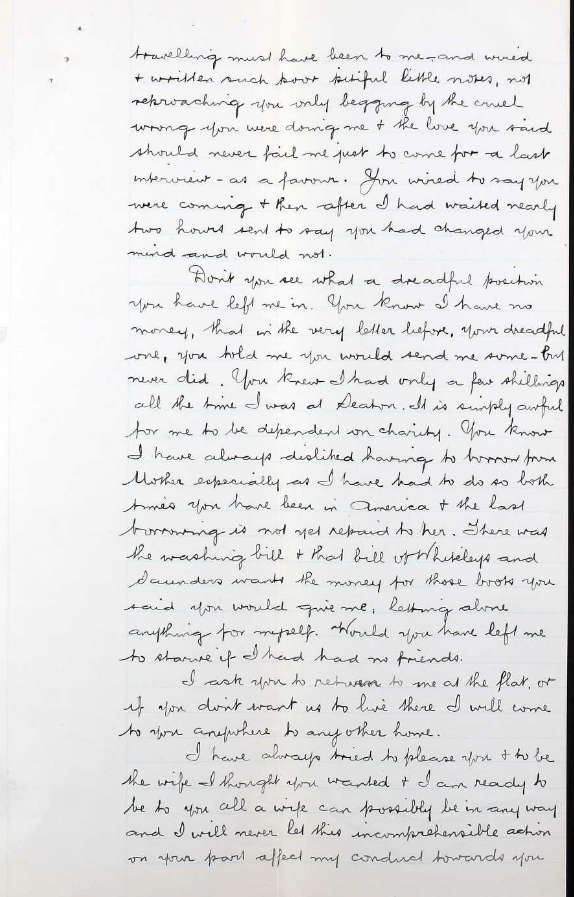 travelling must have been to me - and wired
& written such poor pitiful little notes, not
reproaching you only begging by the cruel
wrong you were doing me & the love you said
should never fail me just to come for a last
interview - as a favour. You wired to say you
were coming & then after I had waited nearly
two hours sent to say you had changed your
mind and would not.
Don't you see what a dreadful position
you have left me in. You know I have no
money, that in the very letter before, your dreadful
one, you told me you would send me some - but
never did. You knew I had only a few shillings
all the time I was at Seaton. It is simply awful
for me to be dependent on charity. You know
I have always disliked having to borrow from
Mother especially as I have had to do so both
times you have been in America & the last
borrowing is not yet repaid to her. There was
the washing bill & that bill of Whiteleys and
Saunders wants the money for those boots you
said you would give me; letting alone
anything for myself. Would you have left me
to starve if I had had no friends.
I ask you to return to me at the flat, or
if you don't want us to live there I will come
to you anywhere to any other home.
I have always tried to please you & to be
the wife I thought you wanted & I am ready to
be to you all a wife can possibly be in any way
and I will never let this incomprehensible action
on your part affect my conduct towards you